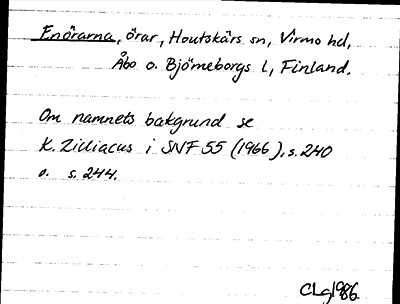 Enörarna, örar, Houtskärs sn, Virmo hd,
Åbo o. Björneborgs l, Finland.
Om namnets bakgrund se
K. Zilliacus i SNF 55 (1966), s. 240
o. s. 244.
CLg 1986.